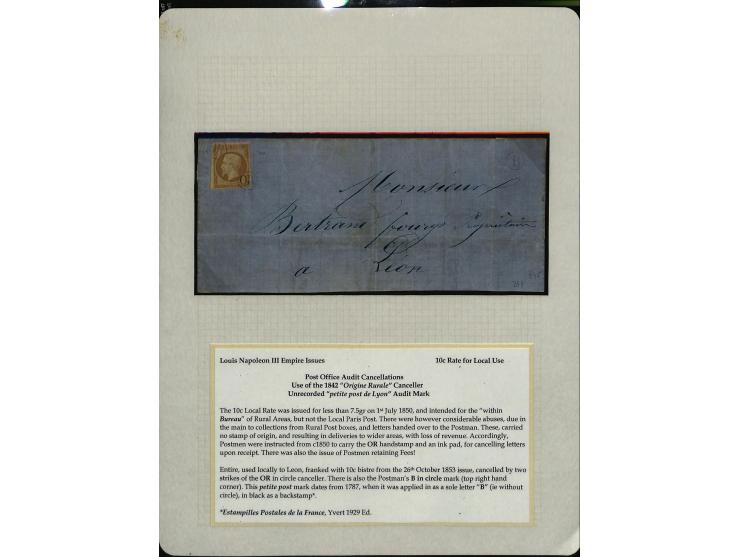 Monsieur
Bertrand
a Léon
Louis Napoleon III Empire Issues 10c Rate for Local Use
Post Office Audit Cancellations
Use of the 1842 "Origine Rurale" Canceller
Unrecorded "petite post de Lyon" Audit Mark
The 10c Local Rate was issued for less than 7.5gr on 1st July 1850, and intended for the "within
Bureau" of Rural Areas, but not the Local Paris Post. There were however considerable abuses, due in
the main to collections from Rural Post boxes, and letters handed over to the Postman. These, carried
no stamp of origin, and resulting in deliveries to wider areas, with loss of revenue. Accordingly,
Postmen were instructed from c1850 to carry the OR handstamp and an ink pad, for cancelling letters
upon receipt. There was also the issue of Postmen retaining Fees!
Entire, used locally to Leon, franked with 10c bistre from the 26th October 1853 issue, cancelled by two
strikes of the OR in circle canceller. There is also the Postman's B in circle mark (top right hand
corner). This petite post mark dates from 1787, when it was applied in as a sole letter "B" (ie without
circle), in black as a backstamp*.
*Estampilles Postales de la France, Yvert 1929 Ed.